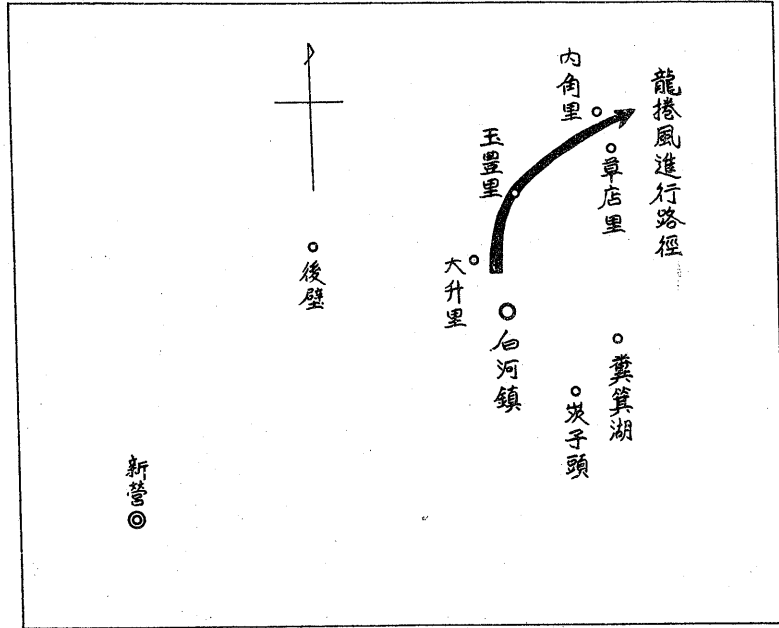 龍捲風進行路徑
內角里
草店里
玉豐里
大升里
白河鎮
後壁
糞箕湖
崁子頭
新營